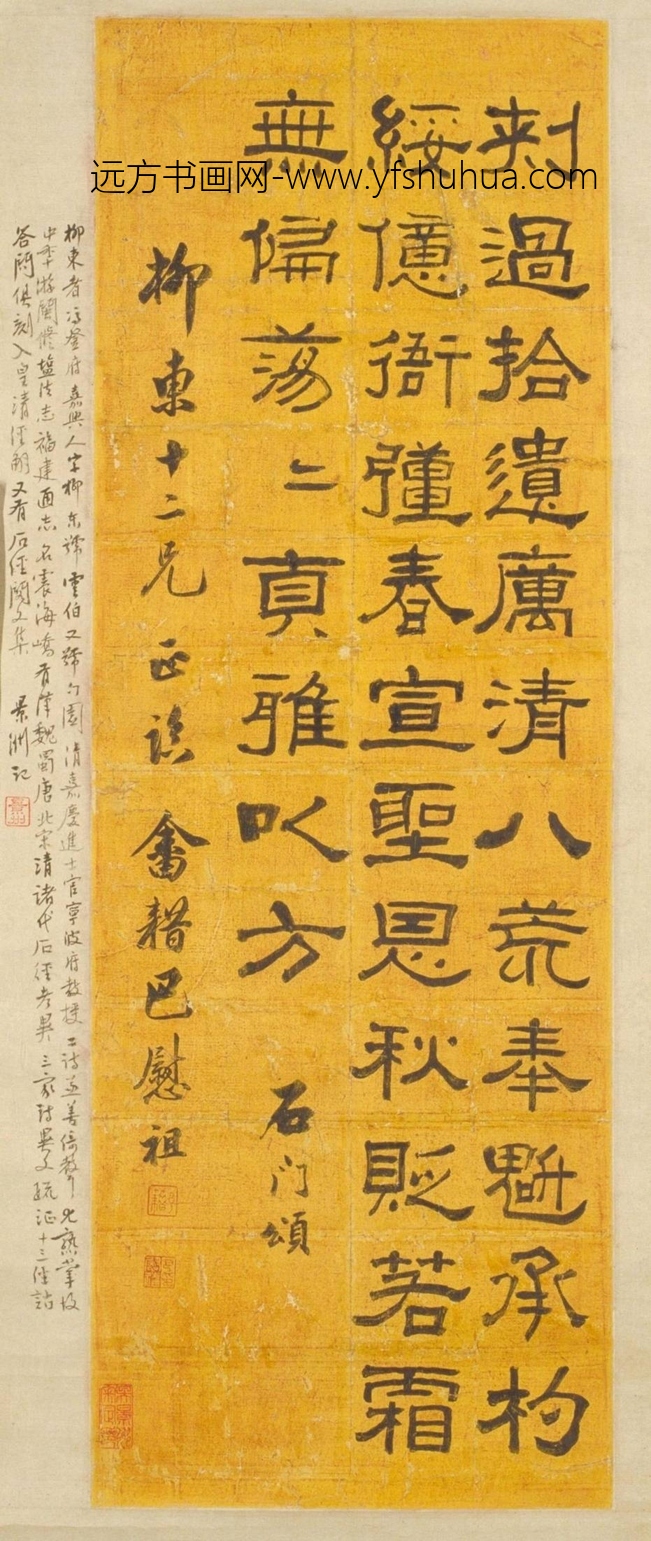 远方书画网-www.yfshuhua.com
刺過拾遺厲清八荒奉魁承杓
綏億衙彊春宣聖恩秋貶若霜
無偏蕩〻貞雅以方
石门頌
柳東十二兄正誃 奮耤巴慰祖
柳東者馮登府嘉興人字柳东號雲伯又號勺園清嘉慶進士官寧波府教授工詩並善倚聲尤熟掌故
中年游閩修盐法志福建通志名震海嶠有漢魏蜀唐北宋清诸代石经考異三家詩異文疏证十三经詁
答問俱刻入皇清经解又有石经閣文集 景洲记